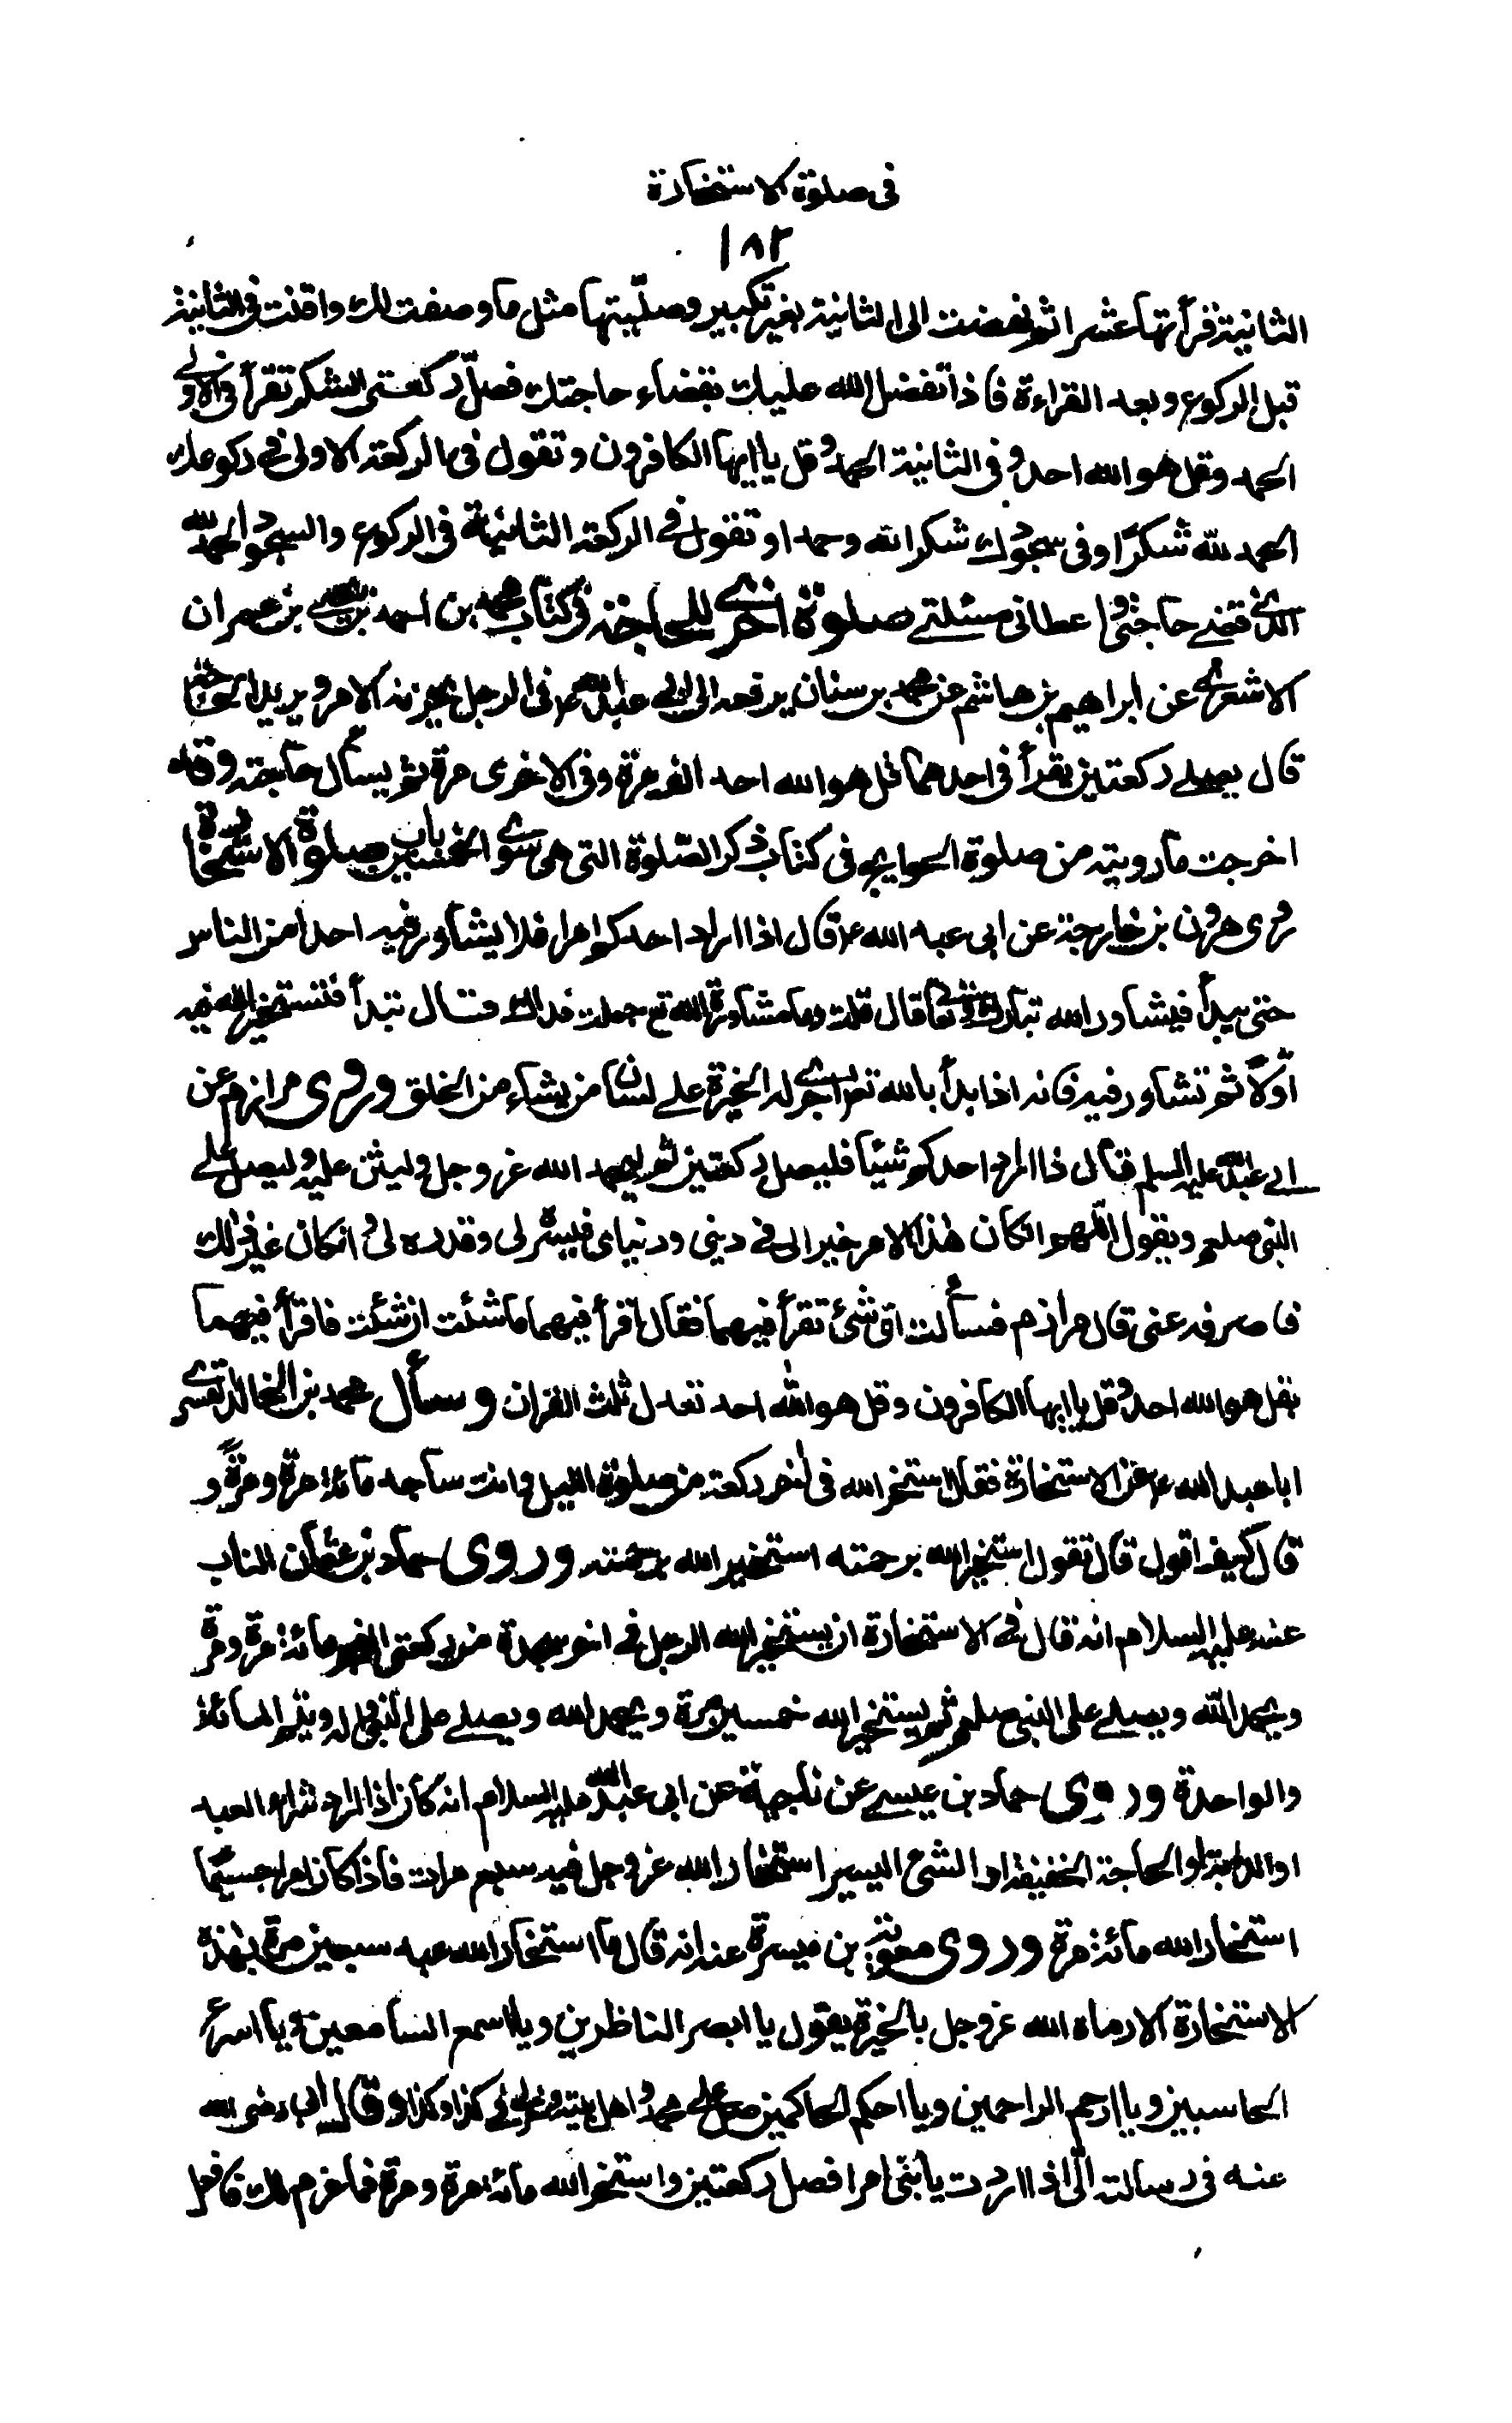 فى صلوة الاستخارة
١٨٢
الثانية قرأتها عشرا ثم نهضت الى الثانية بغير تكبير وصلّيتها مثل ما وصفت لك واقنت فى الثانية
قبل الركوع وبعد القراءة فاذا تفضل الله عليك بقضاء حاجتك فصلّ ركعتى الشكر تقرأ فى الاولى
الحمد وقل هو الله احد وفى الثانية الحمد وقل يا ايها الكافرون وتقول فى الركعة الاولى فى ركوعك
الحمد لله شكرًا وفى سجودك شكرا لله وحمدا وتقول فى الركعة الثانية فى الركوع والسجود الحمد لله
الذى قضى حاجتى واعطانى مسئلتى صلوة اخرى للحاجة فى كتاب محمد بن احمد بن يحيى بن عمران
الاشعرى عن ابراهيم بن هاشم عن محمد بن سنان يرفعه الى ابى عبد الله ع فى الرجل يحزنه الامر ويريد الحاجة
قال يصلى ركعتين يقرأ فى احدهما قل هو الله احد الف مرة وفى الاخرى مرة ثم يسأل حاجته وقد
اخرجت ما رويته من صلوة الحوايج فى كتاب ذكر الصّلوة التى هى سوى الخمسين باب صلوة الاستخارة
روى هرون بن خارجة عن ابى عبد الله ع قال اذا اراد احدكم امرا فلا يشاور فيه احدا من الناس
حتى يبدأ فيشاور الله تبارك وتعا قال قلت وما مشاورة الله تع جعلت فداك فقال تبدأ فتستخير الله فيه
اوّلًا ثم تشاور فيه فانه اذا بدأ بالله تع اجرى له الخيرة على لسان من يشاء من الخلق وروى مرازم عن
ابى عبد الله عليه السلم قال اذا اراد احدكم شيئا فليصل ركعتين ثم ليحمد الله عز وجل وليثن عليه وليصل على
النبى صلعم ويقول اللهم ان كان هذا الامر خيرا لى فى دينى ودنياى فيسّره لى وقدره لى وان كان غير ذلك
فاصرفه عنى قال مرازم فسألت اى شئ تقرأ فيهما فقال اقرأ فيهما ما شئت ان شئت فاقرأ فيهما
بقل هو الله احد وقل يا ايها الكافرون وقل هو الله احد تعدل ثلث القران وسأل محمد بن الخالد القسرى
ابا عبد الله ع عن الاستخارة فقال استخر الله فى اخر ركعة من صلوة الليل وانت ساجد مائة مرة ومرةً و
قال كيف اقول قال تقول استخير الله برحمته استخير الله برحمته وروى حماد بن عثمان الناب
عنه عليه السلام انه قال فى الاستخارة ان يستخير الله الرجل فى اخر سجدة من ركعتى الفجر مائة مرة ومرة
ويحمد الله ويصلى على النبى صلعم ثم يستخير الله خمسين مرة ويحمد الله ويصلى على النبى واله ويتم المائة
والواحدة وروى حماد بن عيسى عن ناجية عن ابى عبد الله عليه السلام انه كان اذا اراد شراء العبد
او الدابة او الحاجة الخفيفة او الشئ اليسير استخار الله عز وجل فيه سبع مرات فاذا كان امرا جسيمًا
استخار الله مائة مرة وروى معوية بن ميسرة عنه انه قال ما استخار الله عبد سبعين مرة بهذه
الاستخارة الا رماه الله عز وجل بالخيرة يقول يا ابصر الناظرين ويا اسمع السامعين ويا اسرع
الحاسبين ويا ارحم الراحمين ويا احكم الحاكمين صل على محمد واهل بيته وخر لى فى كذا وكذا وقال ابى رضى الله
عنه فى رسالته الىّ اذا اردت يا بنى امرا فصل ركعتين واستخر الله مائة مرة ومرة فما عزم لك فافعل